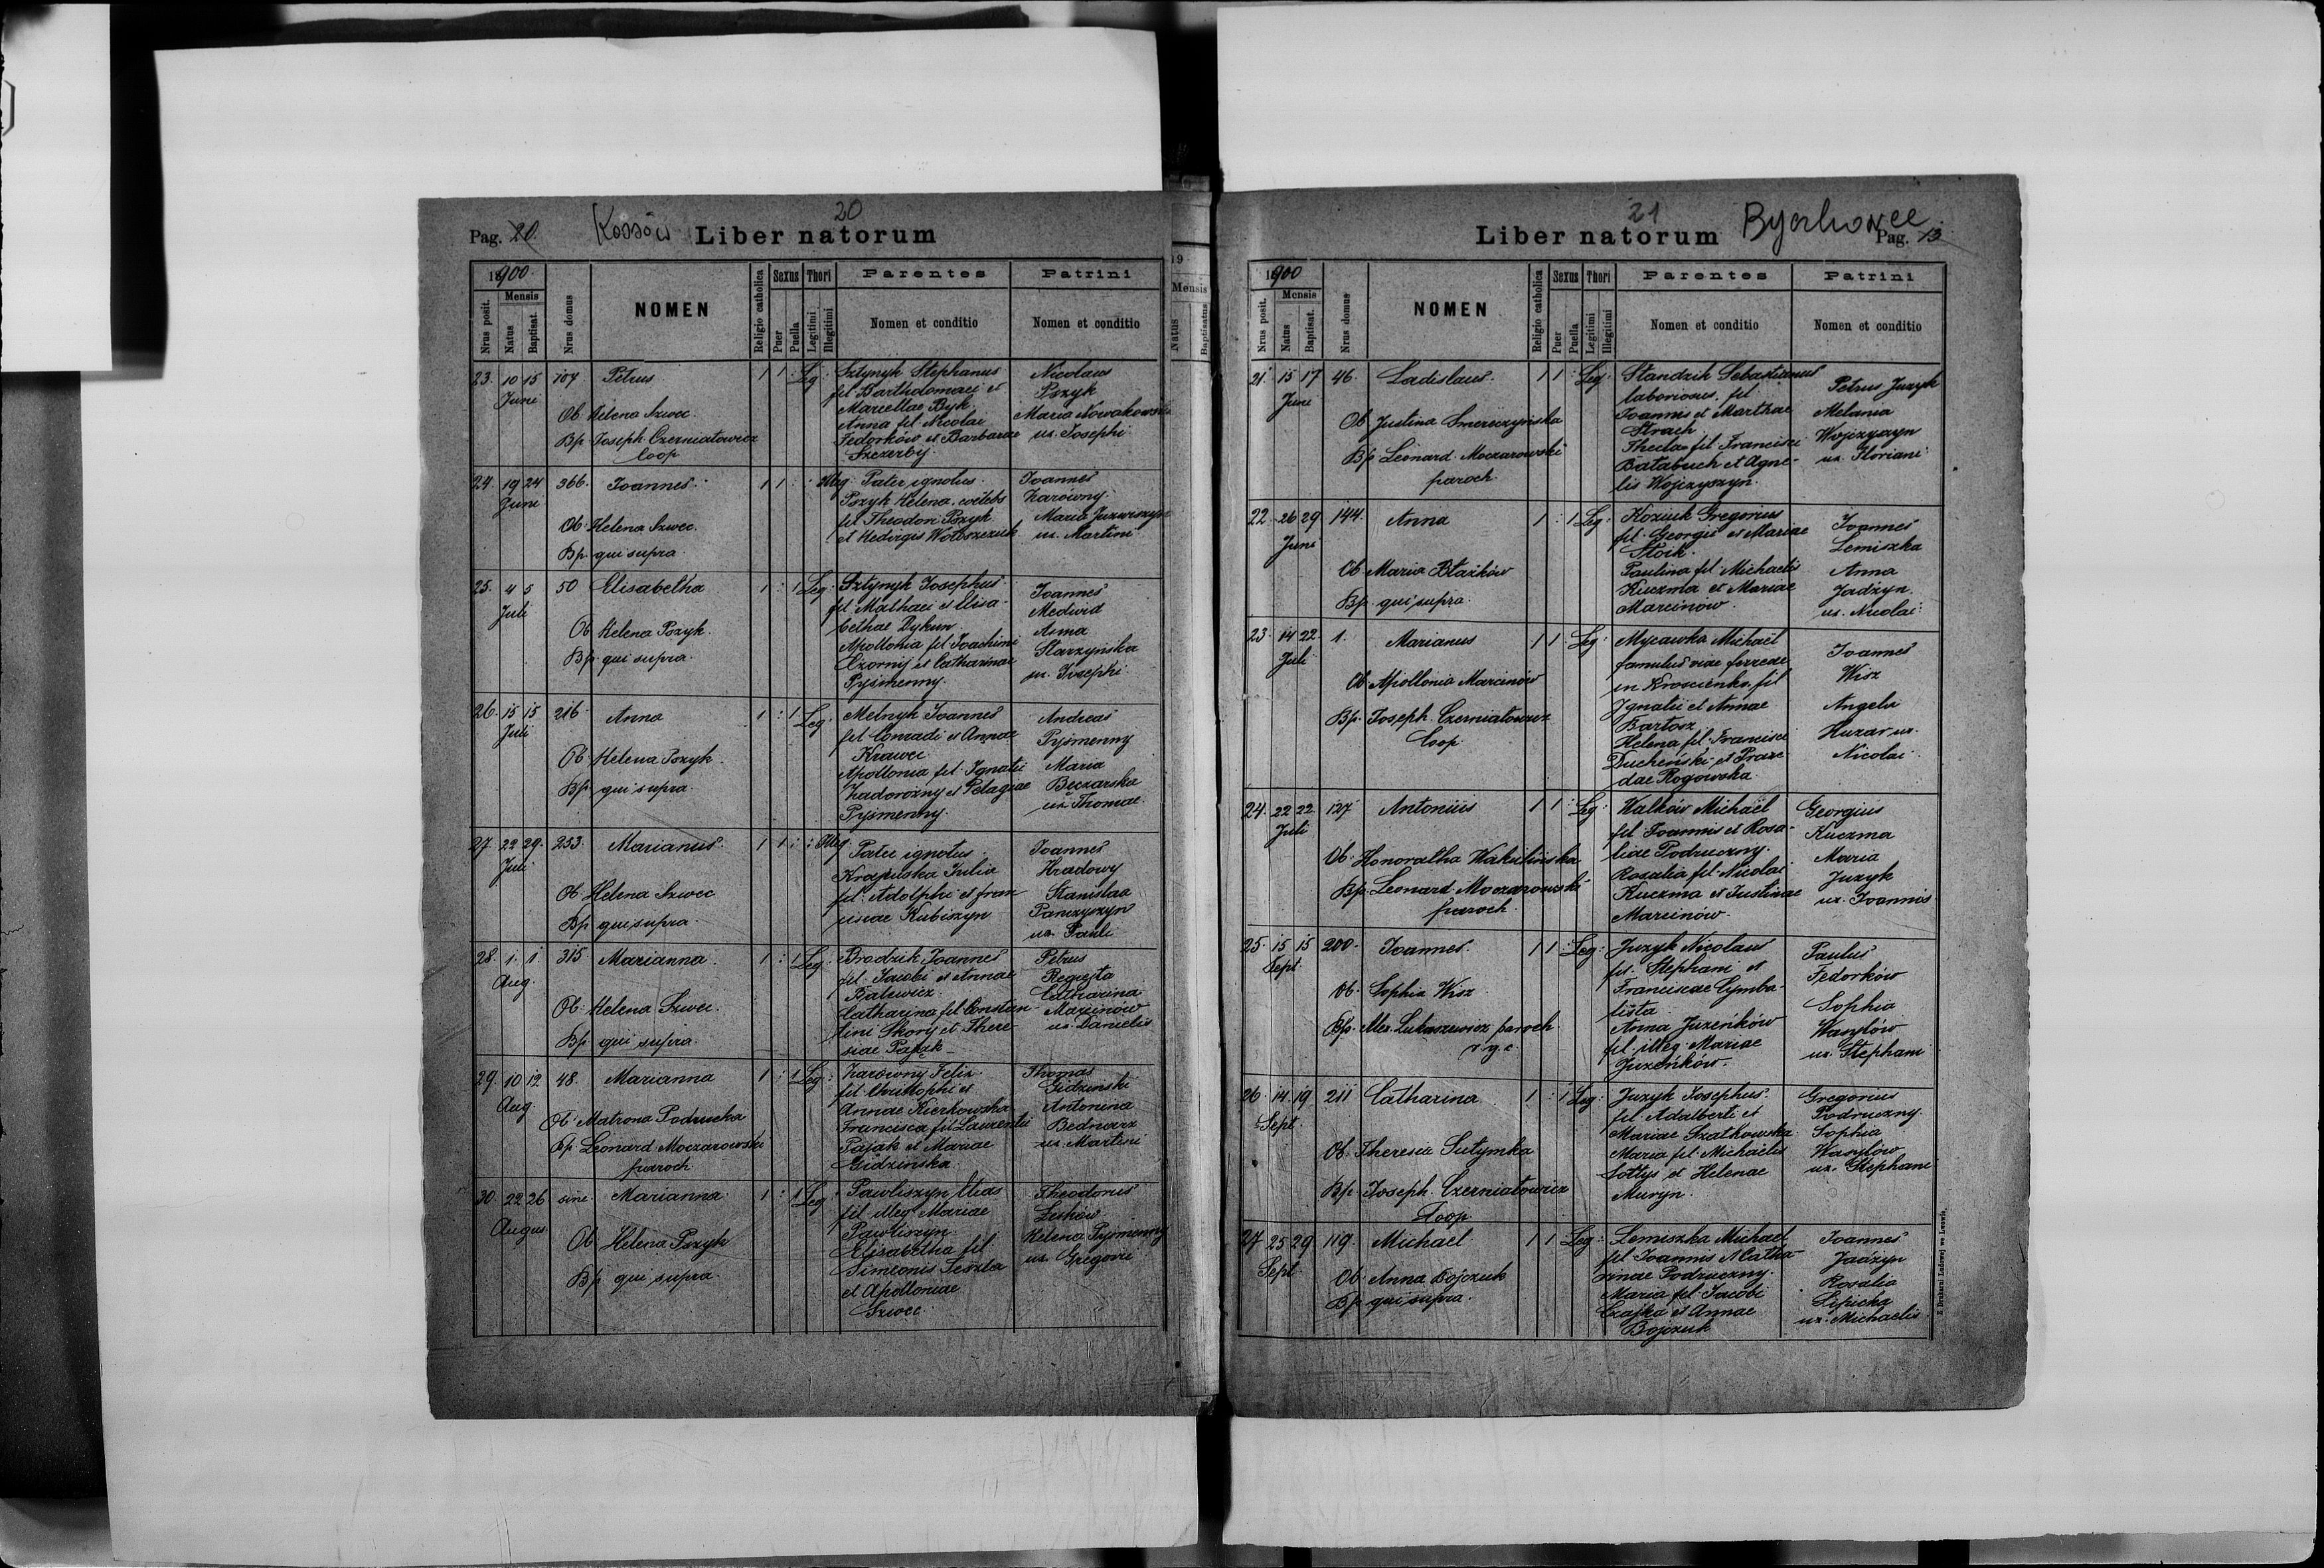 Pag. 20
Kossów
20
Liber natorum
1900
Nrus posit.
Mensis
Natus
Baptisat.
Nrus domus
NOMEN
Religio catholica
Sexus
Puer
Puella
Thori
Legitimi
Illegitimi
Parentes
Nomen et conditio
Patrini
Nomen et conditio
23. 10 15 107 Petrus 1 1 Leg.
Juni
Ob. Helena Szwec
Bp. Joseph Czerniatowicz
Coop
Sztynyk Stephanus
fil Bartholomaei et
Marcellae Byk.
Anna fil Nicolai
Fedorków et Barbarae
Szczerby.
Nicolaus
Pszyk
Maria Nowakowska
ux. Josephi
24. 19 24 366. Joannes 1 1 Illeg.
Juni
Ob. Helena Szwec.
Bp. qui supra.
Pater ignotus.
Pszyk Helena, coelebs
fil Theodori Pszyk
et Hedvigis Wołoszczuk
Joannes
Zarówny.
Maria
ux. Martini
25. 4 5 50 Elisabetha 1 : 1 Leg.
Juli
Ob Helena Pszyk.
Bp. qui supra.
Sztynyk Josephus
fil Mathaei et Elisa-
bethae Dykun.
Apollonia fil Joachimi
Czornij et Catharinae
Pyśmenny.
Joannes
Medwid
Anna
Starzyńska
ux. Josephi
26. 15 15 216 Anna 1 : 1 Leg.
Juli
Ob. Helena Pszyk.
Bp. qui supra.
Melnyk Joannes
fil Conradi et Annae
Krawec
Apollonia fil Ignatii
Zadorożny et Pelagiae
Pyśmenny.
Andreas
Pyśmenny
Maria
Beczarska
ux. Thomae.
27 22 29. 253. Marianus 1 1 : : Illeg.
Juli
Ob. Helena Szwec
Bp. qui supra.
Pater ignotus.
Krapulska Julia
fil. Adolphi et Fran
ciscae Kubiszyn
Joannes
Hradowy
Stanislaa
Panczyszyn
ux. Pauli
28. 1. 1. 315 Marianna. 1 : 1 Leg.
Aug.
Ob. Helena Szwec.
Bp. qui supra.
Brodzik Joannes
fil. Jacobi et Annae
Balewicz.
Catharina fil Constan-
tini Skory et There-
siae Pająk
Petrus
Regiejta
Catharina
Marcinów
ux. Danielis
29. 10 12 48. Marianna 1 : 1 Leg.
Aug.
Ob. Matrona Podrucka
Bp. Leonard Moczarowski
paroch
Zarówny Felix
fil. Christophi et
Annae Kierkowska
Francisca fil Laurentii
Pająk et Mariae
Gidzińska.
Thomas
Gidzinski
Antonina
Bednarz
ux. Martini
30. 22 26 sine. Marianna 1 : 1 Leg
Augus
Ob Helena Pszyk
Bp. qui supra.
Pawliszyn Elias
fil illeg Mariae
Pawliszyn
Elisabetha fil
Simeonis Leszla
et Apolloniae
Szwec.
Theodorus
Leśków
Helena Pyśmenny
ux. Gregorii
21
Liber natorum
Byczkowce
Pag. 13
1900
Nrus posit.
Mensis
Natus
Baptisat.
Nrus domus
NOMEN
Religio catholica
Sexus
Puer
Puella
Thori
Legitimi
Illegitimi
Parentes
Nomen et conditio
Patrini
Nomen et conditio
21. 15 17 46. Ladislaus. 1 1 : Leg.
Juni
Ob Justina Smereczyńska
Bp. Leonard. Moczarowski
paroch.
Standzik Sebastianus
laboriosus, fil
Joannis et Marthae
Strach.
Thecla fil Francisci
Batabuch et Agne-
tis Wojczyszyn.
Petrus Juzyk
Melania
Wojczyszyn
ux. Floriani
22. 26 29 144 Anna 1 : 1 Leg.
Juni
Ob. Maria Błażków
Bp. qui supra.
Koziuk Gregorius
fil. Georgii et Mariae
Stoik.
Paulina fil Michaelis
Kuczma et Mariae
Marcinow.
Joannes
Lemiszka
Anna
Jadżyn.
ux. Nicolai
23. 14 22. 1. Marianus 1 1 : Leg.
Juli
Ob. Apollonia Marcinów
Bp. Joseph. Czerniatowicz
Coop.
Mycawka Michael
famulus viae ferreae
in Krościenko, fil
Ignatii et Annae
Bartosz
Helena fil. Francisci
Ducheński et Praxe
dae Rogowska.
Joannes
Wisz
Angela
Huzar ux.
Nicolai
24. 22 22 127 Antonius 1 1 : Leg.
Juli
Ob. Honoratha Wakulińska
Bp. Leonard Moczarowski
paroch.
Walków Michaël
fil Joannis et Rosa-
liae Podruczny.
Rosalia fil. Nicolai
Kuczma et Justinae
Marcinów.
Georgius
Kuczma
Maria
Juzyk
ux. Joannis
25. 15 15 200. Joannes. 1 1 : Leg.
Sept.
Ob. Sophia Wisz.
Bp. Alex. Łukaszewicz paroch
r. g. c.
Juzyk Nicolaus
fil. Stephani et
Franciscae Cymba-
lista.
Anna Juzeńków
fil. illeg. Mariae
Juzeńków.
Paulus
Fedorków
Sophia
Wasylów
ux. Stephani
26. 14. 19 211 Catharina. 1 : 1 Leg.
Sept.
Ob. Theresia Sutymka
Bp. Joseph. Czerniatowicz
Coop.
Juzyk Josephus.
fil. Adalberti et
Mariae Szatkowska.
Maria fil Michaelis
Sołtys et Helenae
Muryn.
Gregorius
Podruczny.
Sophia
Wasylów
ux. Stephani
27 25 29 119. Michael 1 1 : Leg.
Sept.
Ob. Anna Bojczuk
Bp. qui supra.
Lemiszka Michael
fil. Joannis et Catha-
rinae Podruczny.
Maria fil. Jacobi
Czajka et Annae
Bojczuk
Joannes
Jadżyn
Rosalia
Lipicka
ux. Michaelis
Z Drukarni Ludowej we Lwowie.
19
Mensis
Natus
Baptisatus